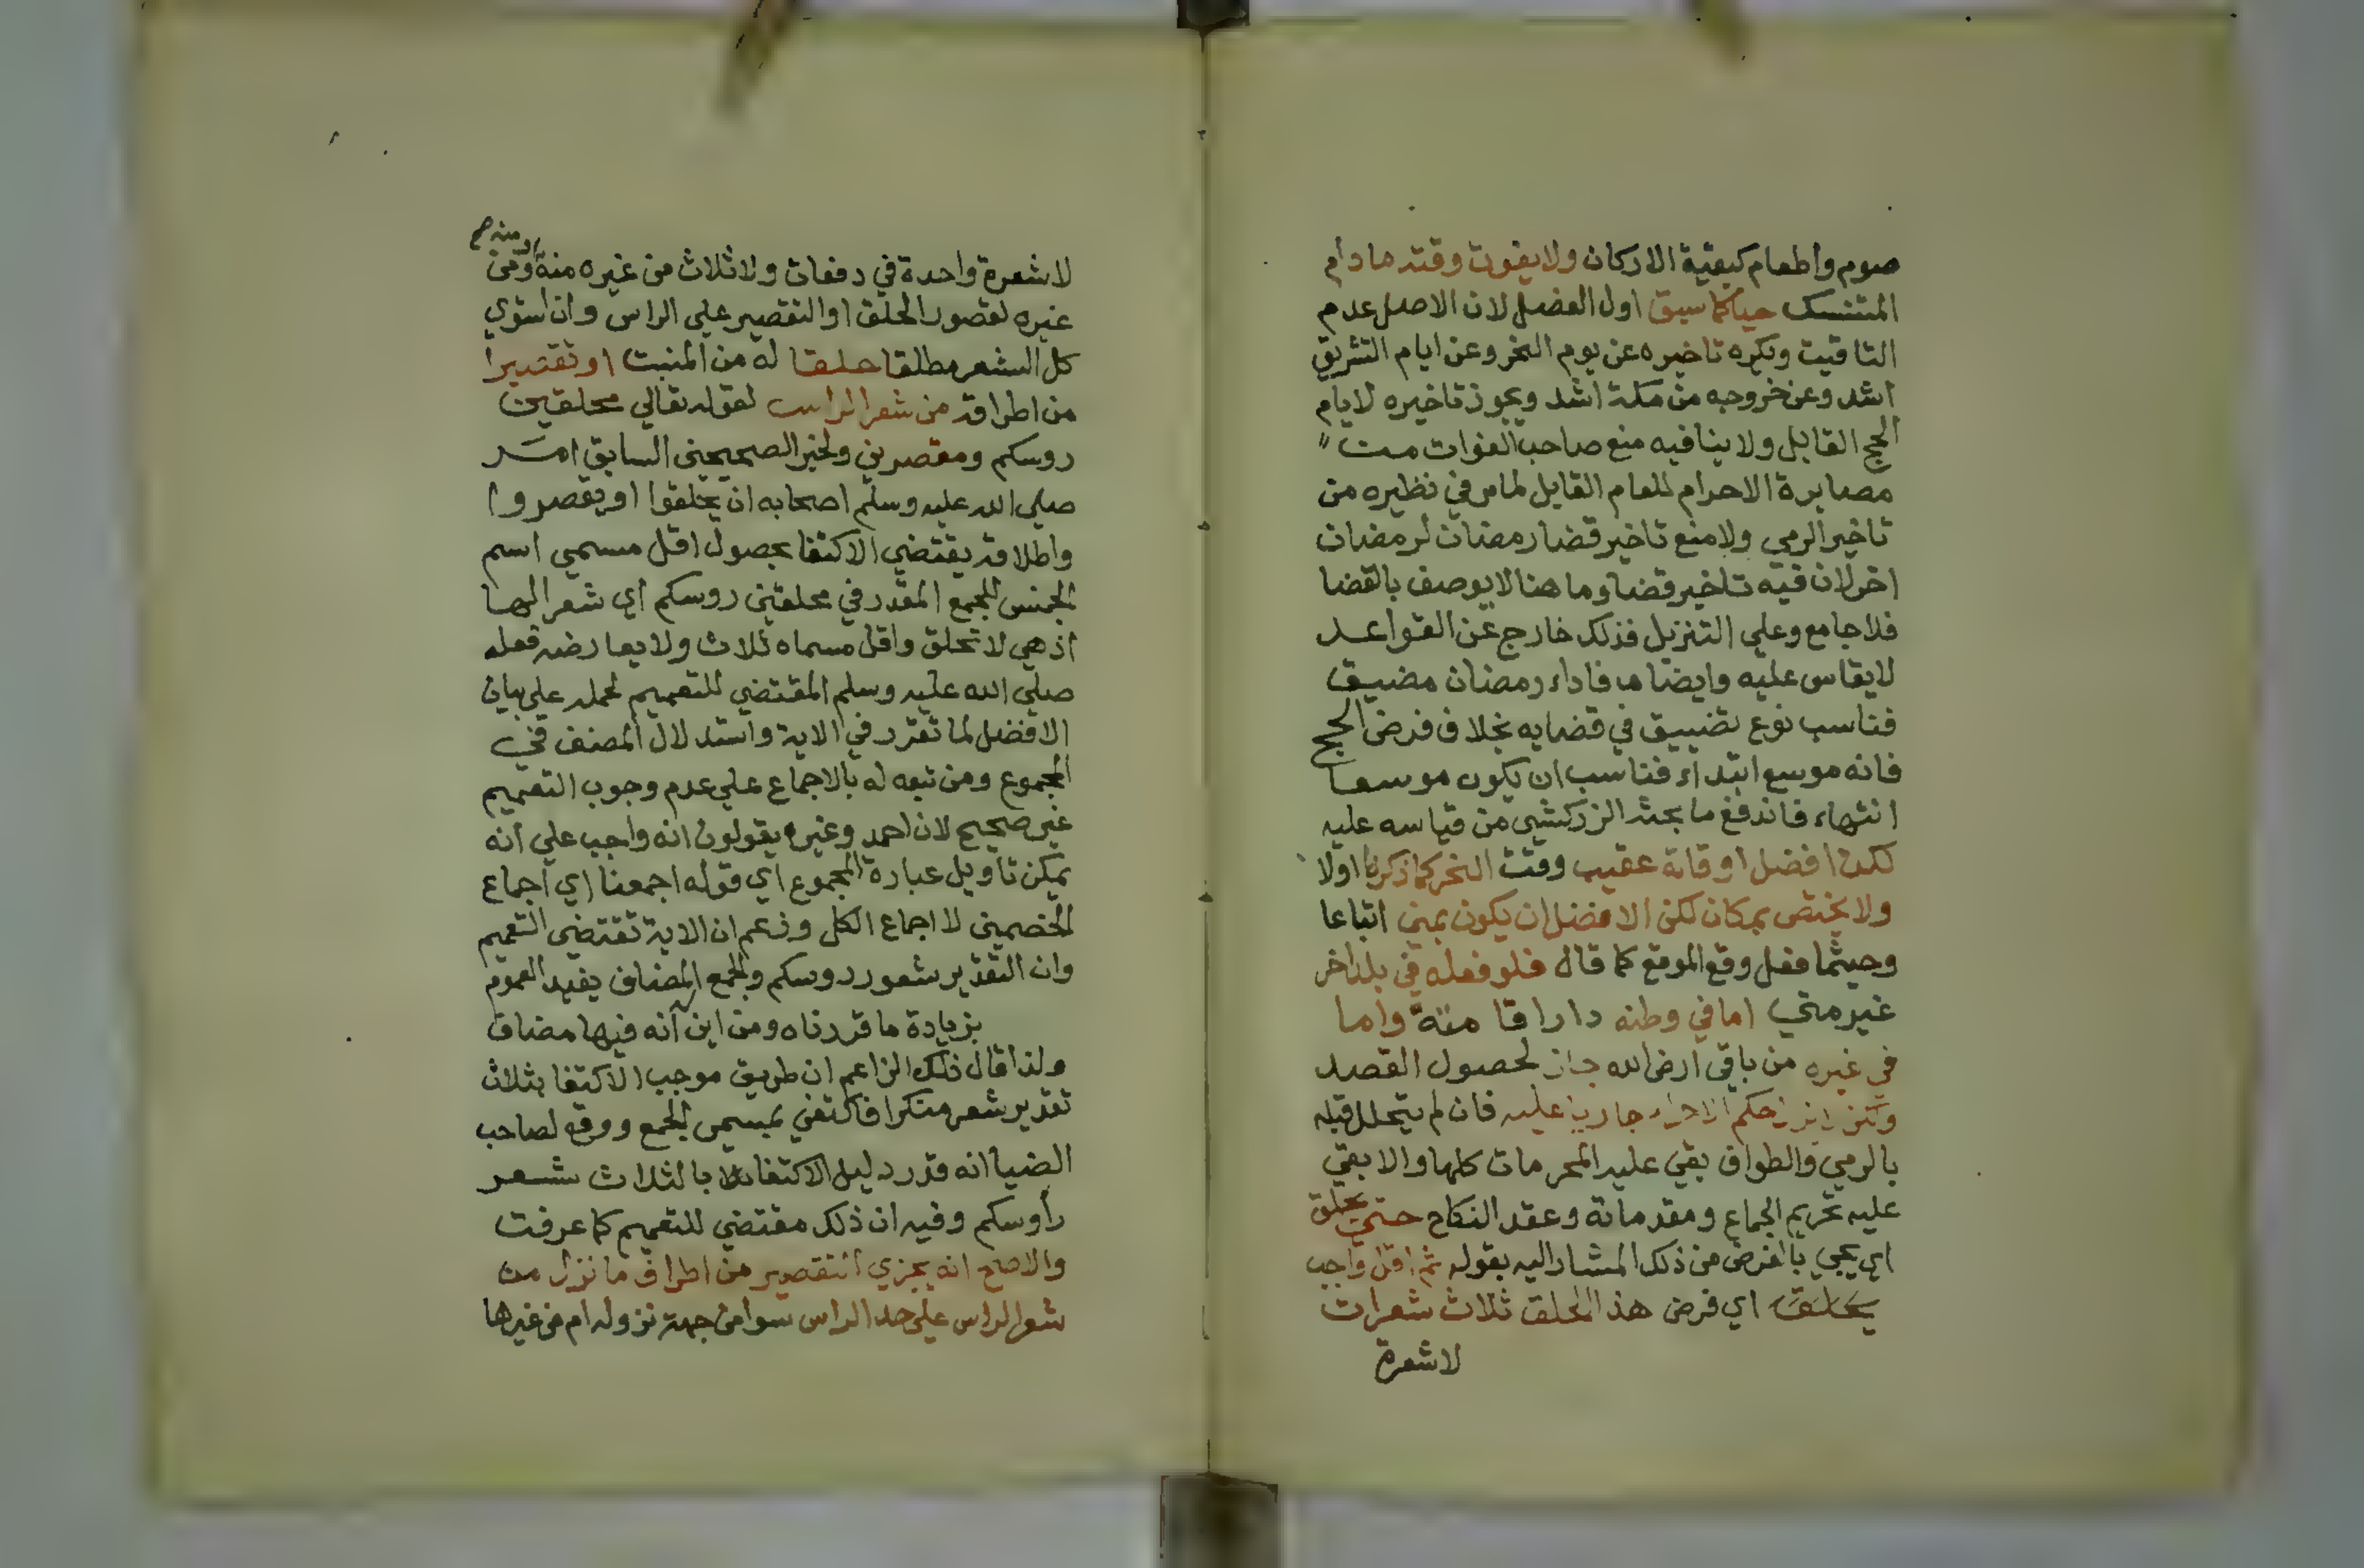 صوم واطعام كبقية الاركان ولا يفوت وقته ما دام
المتنسك حيا كما سبق اول الفصل لان الاصل عدم
التاقيت ويكره تاخيره عن يوم النحر وعن ايام التشريق
اشد وعن خروجه من مكة اشد ويجوز تاخيره لايام
الحج القابل ولا ينافيه منع صاحب الفوات من
مصابرة الاحرام للعام القابل لما مر في نظيره من
تاخير الرمي ولا منع تاخير قضا رمضان لرمضان
اخر لان فيه تاخير قضا وما هنا لا يوصف بالقضا
فلا جامع وعلي التنزيل فذلك خارج عن القواعد
لا يقاس عليه وايضا فاداء رمضان مضيق
فناسب نوع تضييق في قضايه بخلاف فرض الحج
فانه موسع ابتداء فناسب ان يكون موسعا
انتهاء فاندفع ما بحثه الزركشي من قياسه عليه
لكن افضل اوقاته عقيب وقت النحر كما ذكرنا اولا
ولا يختص بمكان لكن الافضل ان يكون بمني اتباعا
وحيثما فعل وقع الموقع كما قال فلو فعله في بلد اخر
غير مني اما في وطنه دارا قا منه واما
في غيره من باقي ارض الله جاز لحصول القصد
حكم الاحرام جاريا عليه فان لم يتحلل قبله
بالرمي والطواف بقي عليه المحرمات كلها والا بقي
عليه تحريم الجماع ومقدماته وعقد النكاح حتي يحلق
اي يجي بالفرض من ذلك المشار اليه بقوله ثم اقل واجب
يحلق اي فرض هذا الحلق ثلاث شعرات
لا شعرة
لا شعرة واحدة في دفعات ولا ثلاث من غيره منه او من
منه صح
غيره لقصور الحلق او التقصير علي الراس وان استوي
كل الشعر مطلقا حلقا له من المنبت او تقصيرا
من اطرافه من شعر الراس لقوله تعالي محلقين
روسكم ومقصرين ولخبر الصحيحين السابق امر
صلي الله عليه وسلم اصحابه ان يحلقوا او يقصروا
واطلاقه يقتضي الاكتفا بحصول اقل مسمي اسم
الجنس للجمع المقدر في محلقين روسكم اي شعر الها
اذ هي لا تحلق واقل مسماه ثلاث ولا يعارضه فعله
صلي الله عليه وسلم المقتضي للتعميم لحمله علي بيان
الافضل لما تقرر في الاية واستدلال المصنف في
المجموع ومن تبعه له بالاجماع علي عدم وجوب التعميم
غير صحيح لان احمد وغيره يقولون انه واجب علي انه
يمكن تاويل عبارة المجموع اي قوله اجمعنا اي اجماع
الخصمين لا اجماع الكل وزعم ان الاية تقتضي التعميم
وان التقدير شعور روسكم والجمع المضاف يفيد العموم
بزيادة ما قررناه ومن اين له انه فيها مضاف
ولذا قال ذلك الزاعم ان طريق موجب الاكتفا بثلاث
تقدير شعر منكرا فاكتفي بمسمي الجمع ووقع لصاحب
الضيا انه قدر دليل الاكتفا بالثلاث شعر
رأوسكم وفيه ان ذلك مقتضي للتعميم كما عرفت
والاصح انه يجزي التقصير من اطراف ما نزل من
شعر الراس علي حد الراس سوا من جهة نزوله ام من غيرها